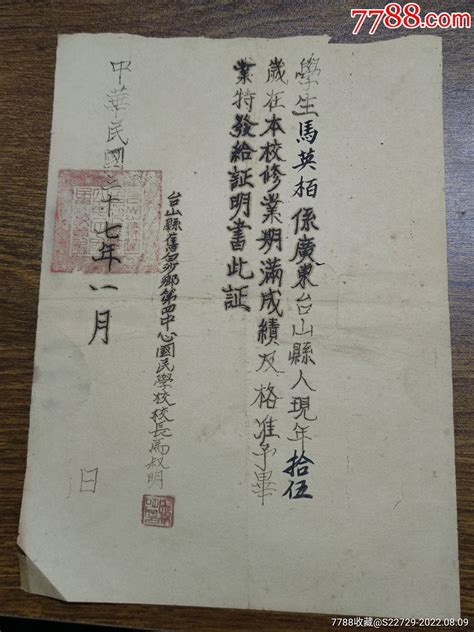 7788.com
學生馬英栢係廣東台山縣人現年拾伍
歲在本校修業期滿成績及格准予畢
業特發給証明書此証
台山縣舊白沙鄉第四中心國民學校校長馬叔明
中華民國三十七年八月 日
7788收藏@S22729-2022.08.09